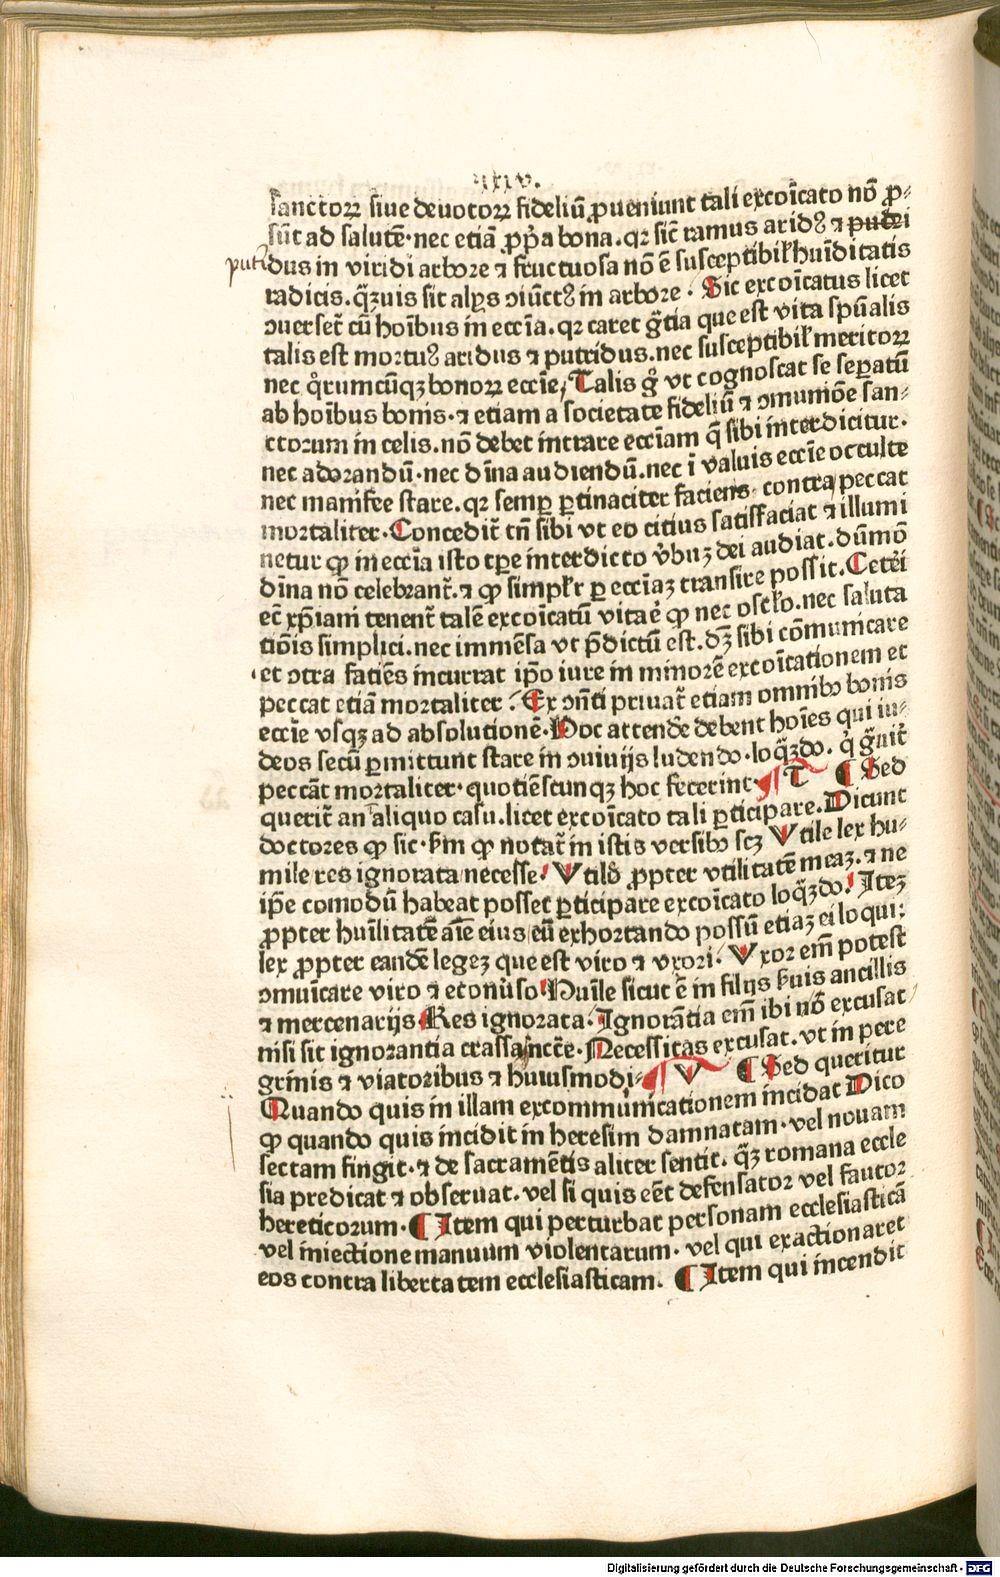 xxv.
sanctoꝝ siue deuotoꝝ fideliū ꝓueniunt tali excoīcato nō ꝓ-
sūt ad salutē· nec etiā ꝓp̄a bona. qꝛ sic̄ ramus aridꝰ ⁊ putri
putri dus in viridi arbore ⁊ fructuosa nō ē susceptibil' huīditatis
radicis. qͣ̄uis sit alijs ↄiūctꝰ in arbore · Sic excoīcatus licet
ↄuerset̄ cū hoībus in eccīa. qꝛ caret gr̄tia que est vita spūalis
talis est mortuꝰ aridus ⁊ putridus. nec susceptibil' meritoꝝ
nec qͦrumcūqꝫ bonoꝝ eccīe/ Talis gͦ vt cognoscat se sepatū
ab hoībus bonis· ⁊ etiam a societate fideliū ⁊ ↄmumōe san-
ctorum in celis. nō debet intrare eccīam q̄ sibi interdicitur.
nec adorandū· nec dīna audiendū. nec ī valuis eccīe occulte
nec manifee stare. qꝛ semꝑ ꝑtinaciter faciens, contra peccat
mortaliter · Concedit̄ tn̄ sibi vt eo citius satisfaciat ⁊ illumi
netur ꝙ in eccīa isto tꝑe interdicto v̓buꝫ dei audiat. dūmō
dīna nō celebrant̄. ⁊ ꝙ simpl'r ꝑ eccīaꝫ transire possit. Ceteri
ec̄ xp̄iani tenent̄ talē excoīcatū vitaē ꝙ nec osc'lo. nec saluta
tiōis simplici. nec immēsa vt p̄dictū est. dꝫ sibi cōmunicare
et ↄtra faciēs incurrat ip̄o iure in minorē excoīcationem et
peccat etiā mortaliter . Ex ↄn̄ti priuat̄ etiam omnibꝰ bonis
eccīe vsqꝫ ad absolutionē · Hoc attendē debent hoīes qui iu-
deos secū ꝑmittunt stare in ↄuiuijs ludendo · loq̄ꝫdo. qͥ gͣuit̄
peccāt mortaliter · quotiēscunqꝫ hoc fecerint · T ¶ Sed
querit̄ an aliquo casu. licet excoīcato tali ꝑticipare. Dicunt
doctores ꝙ sic · ẜm ꝙ notat̄ in istis versibꝰ scꝫ Vtile lex hu-
mile res ignorata necesse! Vtilͤ ꝓpter vtilitatē meaꝫ. ⁊ ne
ip̄e comodū habeat posset ꝑticipare excoīcato loq̄ꝫdo! Iteꝫ
ꝓpter huīlitatē aīe eius/ eū exhortando possū etiaꝫ ei loqui:
lex ꝓpter eandē legeꝫ que est viro ⁊ vxori. Vxor em̄ potest
ↄmuīcare viro ⁊ econuͦso Huīle sicut ē in filijs ẜuis ancillis
⁊ mercenarijs Res ignorata. Ignorātia em̄ ibi nō excusat
nisi sit ignorantia crassa/ncc̄e. Necessitas excusat. vt in pere
grinis ⁊ viatoribus ⁊ huiusmodi- V ¶ Sed queritur
Quando quis in illam excommunicationem incidat Dico
ꝙ quando quis incidit in heresim damnatam · vel nouam
sectam fingit · ⁊ de sacramētis aliter sentit. q̄ꝫ romana eccle
sia predicat ⁊ obseruat. vel si quis eēt defensator vel fautor
hereticorum · ¶ Item qui perturbat personam ecclesiasticā
vel iniectione manuum violentarum · vel qui exactionaret
eos contra libertatem ecclesiasticam. ¶ Item qui incendit
Digitalisierung gefördert durch die Deutsche Forschungsgemeinschaft - DFG